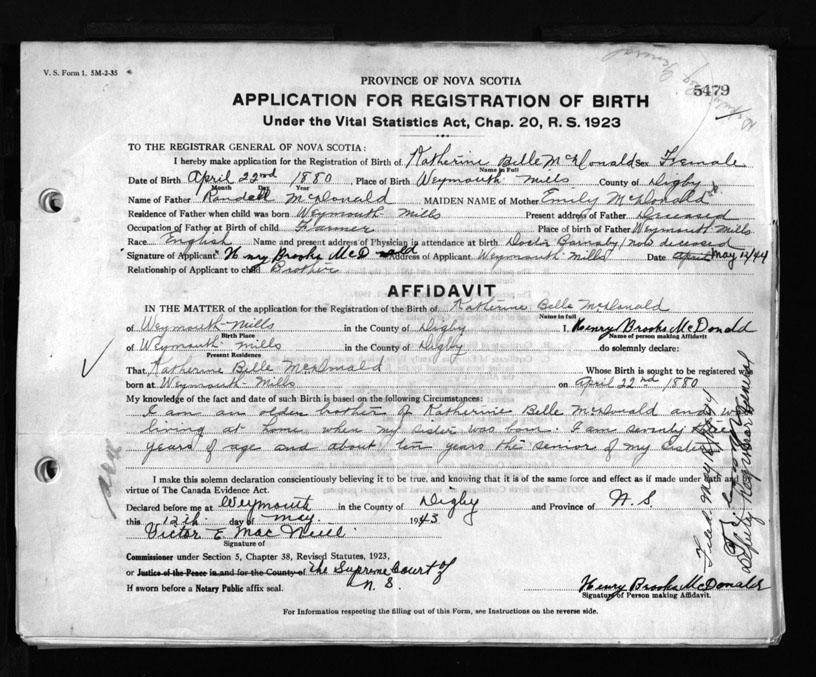 V. S. Form 1. 5M-2-35
5479
PROVINCE OF NOVA SCOTIA
APPLICATION FOR REGISTRATION OF BIRTH
Under the Vital Statistics Act, Chap. 20, R. S. 1923
TO THE REGISTRAR GENERAL OF NOVA SCOTIA:
I hereby make application for the Registration of Birth of Katherine Belle McDonald Sex Female
Name in Full
Date of Birth April 22nd 1880, Place of Birth Weymouth Mills County of Digby
Month Day Year
Name of Father Randall McDonald MAIDEN NAME of Mother Emily McDonald
Residence of Father when child was born Weymouth Mills Present address of Father Deceased
Occupation of Father at Birth of child Farmer Place of birth of Father Weymouth Mills
Race English Name and present address of Physician in attendance at birth Doctor Barnaby / now deceased
Signature of Applicant Henry Brooks McDonald Address of Applicant Weymouth Mills Date April May 12/44
Relationship of Applicant to child Brother
AFFIDAVIT
IN THE MATTER of the application for the Registration of the Birth of Katherine Belle McDonald
Name in full
of Weymouth Mills in the County of Digby I, Henry Brooks McDonald
Birth Place Name of person making Affidavit
of Weymouth Mills in the County of Digby do solemnly declare:
Present Residence
That Katherine Belle McDonald Whose Birth is sought to be registered was
born at Weymouth Mills on April 22nd 1880
My knowledge of the fact and date of such Birth is based on the following Circumstances:
I am an older brother of Katherine Belle McDonald and was
living at home when my sister was born. I am seventy three
years of age and about ten years the senior of my sister
I make this solemn declaration conscientiously believing it to be true, and knowing that it is of the same force and effect as if made under oath and
virtue of The Canada Evidence Act.
Declared before me at Weymouth in the County of Digby and Province of N. S.
this 12th day of May 1943
Victor E. MacNeill
Signature of
Commissioner under Section 5, Chapter 38, Revised Statutes, 1923,
or Justice of the Peace in and for the County of The Supreme Court of
N. S.
If sworn before a Notary Public affix seal.
Henry Brooks McDonald
Signature of Person making Affidavit.
For Information respecting the filling out of this Form, see Instructions on the reverse side.